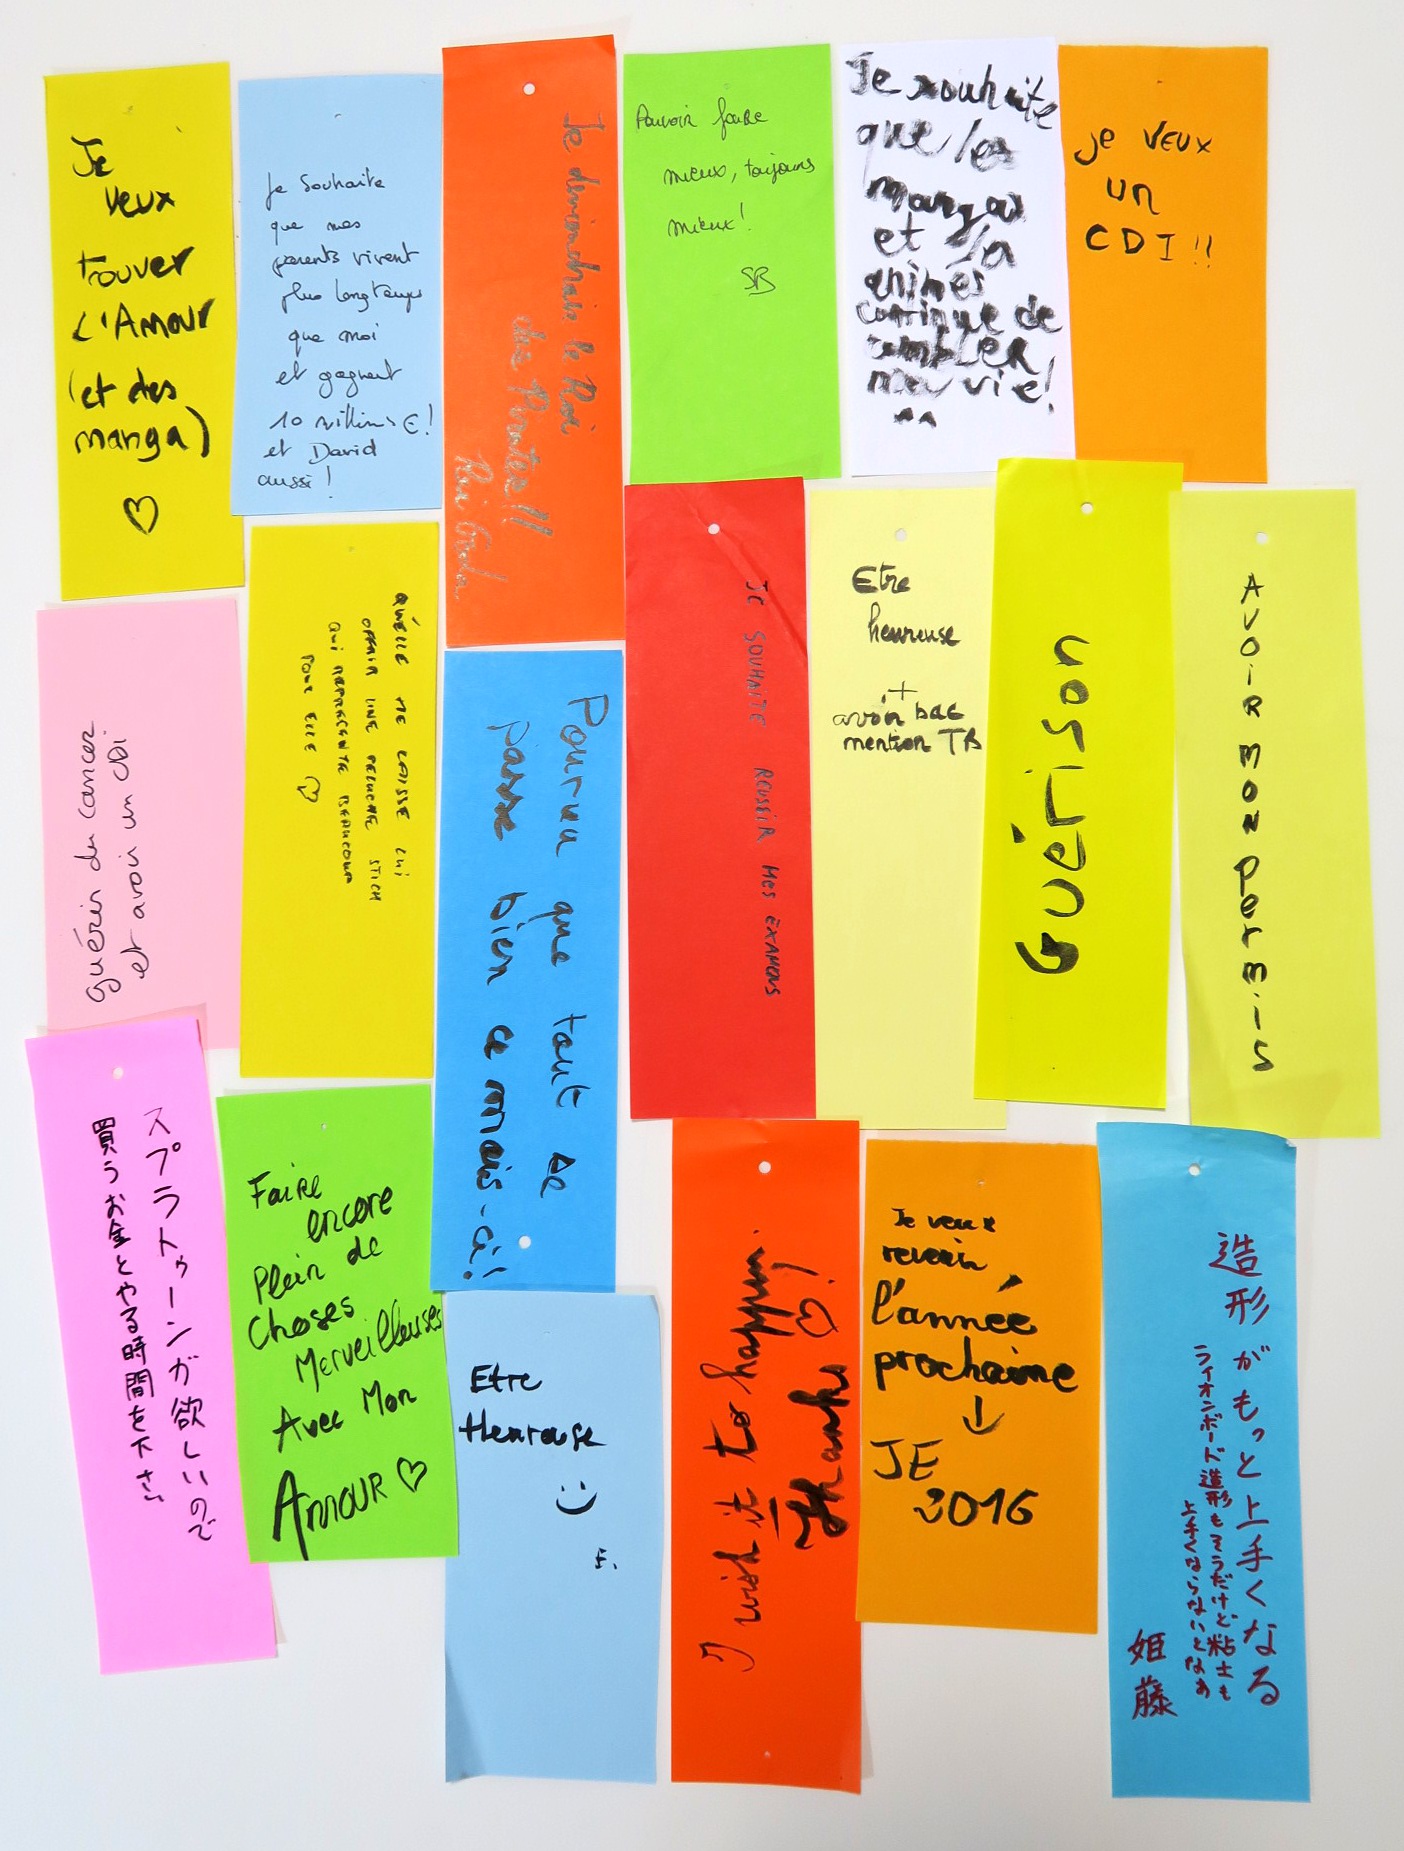 Je
veux
trouver
L'Amour
(et des
manga)
♡
Je souhaite
que mes
parents vivent
plus longtemps
que moi
et gagnent
10 millions €!
et David
aussi!
Je deviendrais le Roi
des Pirates!!
Pouvoir faire
mieux, toujours
mieux!
SB
Je souhaite
que les
mangas
et la
animés
continue de
combler
ma vie!
^^
je veux
un
CDI!!
guérir du cancer
et avoir un CDI
QU'ELLE ME LAISSE LUI
OFFRIR UNE PELUCHE STICH
QUI REPRESENTE BEAUCOUP
POUR ELLE ♡
Pourvu que tout se
passe bien ce mois-ci!
JE SOUHAITE REUSSIR MES EXAMENS
Etre
heureuse
+
avoir bac
mention TB
Guérison
AVOIR MON PERMIS
スプラトゥーンが欲しいので
買うお金とやる時間を下さい
Faire
encore
Plein de
Choses
Merveilleuses
Avec Mon
AMOUR ♡
Etre
Heureuse
:)
E.
I wish it to happen.
Thanks ♡!
Je veux
revenir
l'année
prochaine
↓
JE
2016
造形がもっと上手くなる
ライオンボード造形もそうだけど粘土も
上手くならないとなあ
姫藤